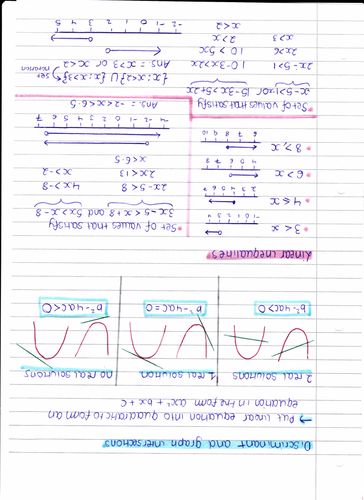 Discriminant and graph intersections
→ Put linear equation into quadratic to form an
equation in the form ax² + bx + c
2 real solutions
1 real solution
no real solutions
b²-4ac>0
b²-4ac=0
b²-4ac<0
Linear inequalities
• 3 < x
-1 0 1 2 3 4
• 4 ≤ x
2 3 4 5 6 7
• 6 > x
4 5 6 7 8
• 8 ≥ x
6 7 8 9 10
• Set of values that satisfy
3x-5<x+8 and 5x>x-8
2x-5<8 4x>-8
2x<13 x>-2
x<6.5
Ans. = -2<x<6.5
• Set of values that satisfy
x-5>1-x or 15-3x>5+2x
2x-5>1 10-3x>2x
2x>6 10>5x
x>3 2>x
x<2
-2 -1 0 1 2 3 4 5
{x:x<2}∪{x:x>3}
Set notation
Ans: x>3 or x<2